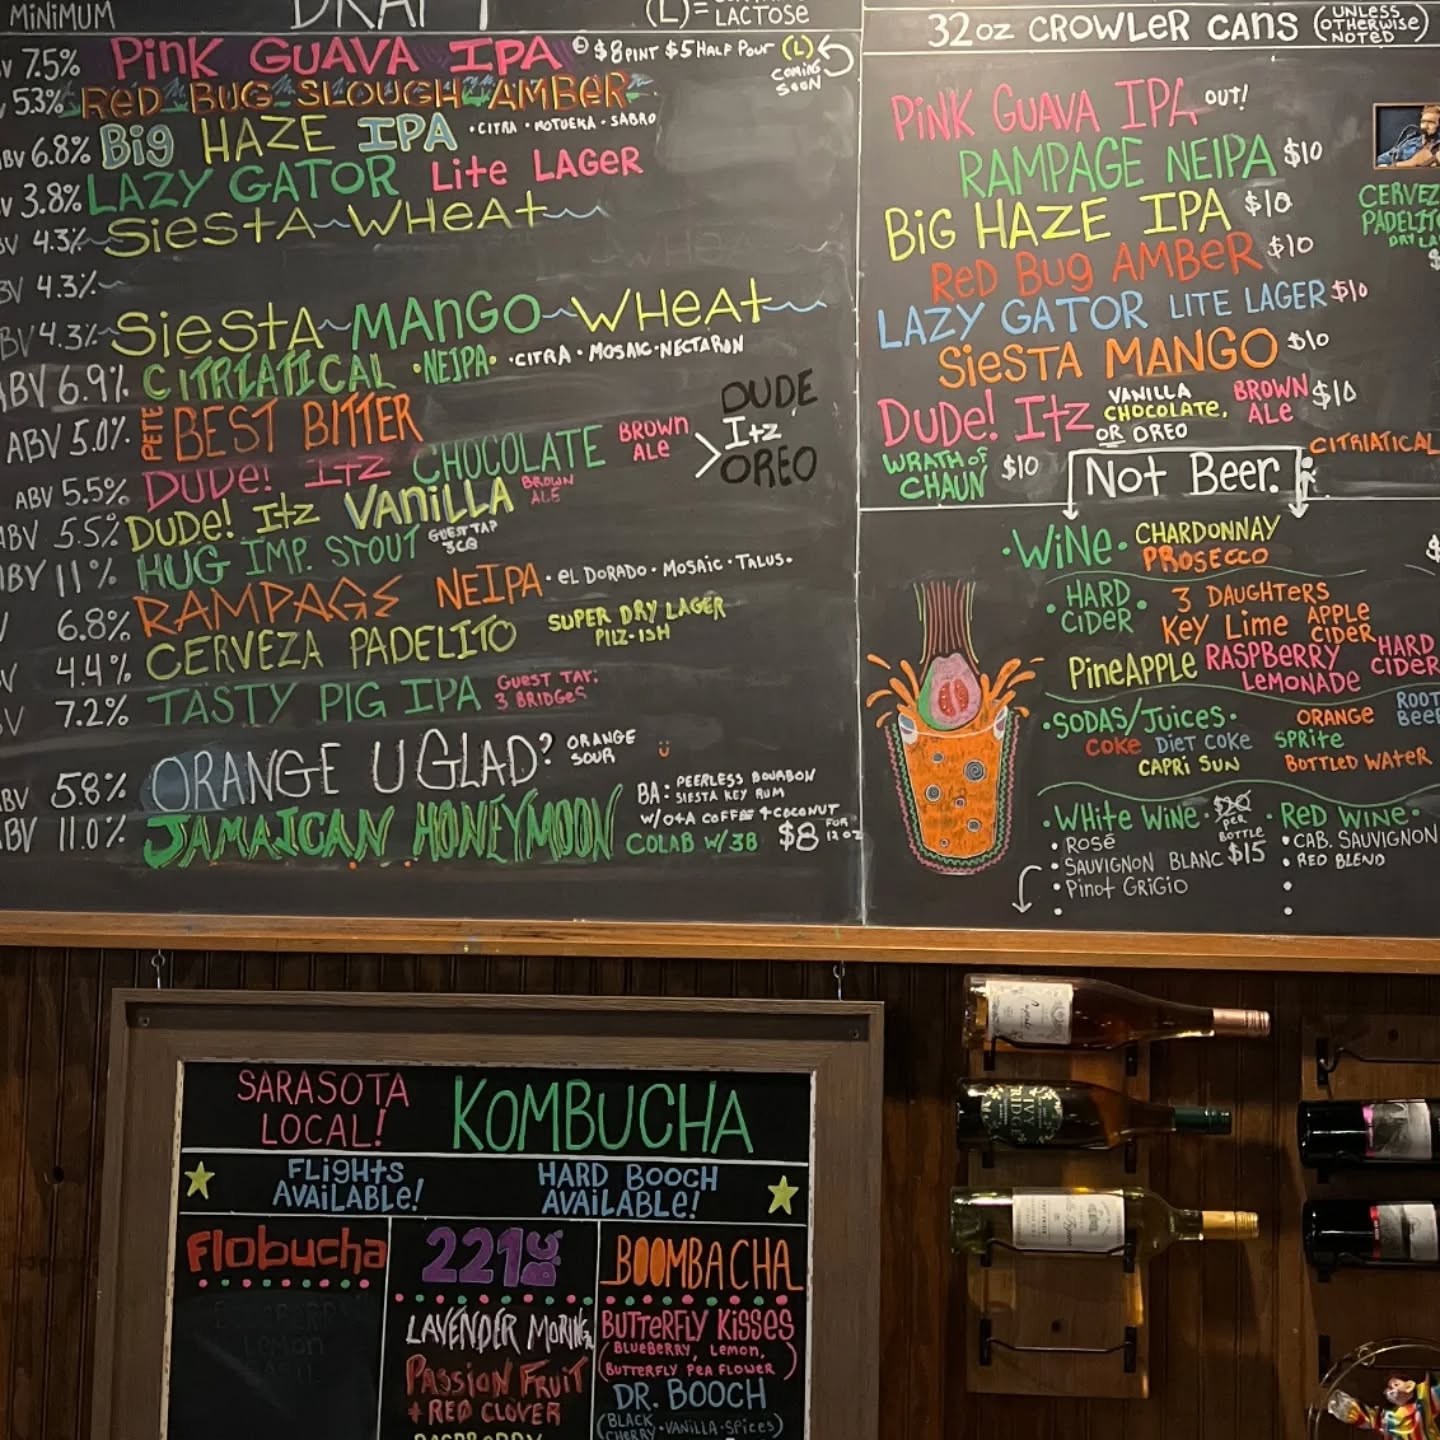 MINIMUM
DRAFT
(L)=
LACTOSE
7.5% PINK GUAVA IPA © $8 PINT $5 HALF POUR (L)
COMING SOON
5.3% RED BUG SLOUGH AMBER
BV 6.8% Big HAZE IPA • CITRA • MOTUEKA • SABRO
V 3.8% LAZY GATOR Lite LAGER
BV 4.3% SiESTA WHEAT
BV 4.3%
BV 4.3% SiESTA MANGO WHEAT
ABV 6.9% CITRIATICAL • NEIPA • • CITRA • MOSAIC • NECTARON
ABV 5.0% PETE BEST BITTER
ABV 5.5% DUDE! ITZ CHOCOLATE BROWN ALE
ABV 5.5% DUDE! ITZ VANILLA BROWN ALE
DUDE
ITZ
OREO
ABV 11% HUG IMP. STOUT GUEST TAP 3CQ
6.8% RAMPAGE NEIPA • EL DORADO • MOSAIC • TALUS.
4.4% CERVEZA PADELITO SUPER DRY LAGER PILZ-ISH
7.2% TASTY PIG IPA GUEST TAP: 3 BRIDGES
BV 5.8% ORANGE U GLAD? ORANGE SOUR
ABV 11.0% JAMAICAN HONEYMOON
BA: PEERLESS BOURBON
SIESTA KEY RUM
W/ O&A COFFEE + COCONUT
COLAB W/3B $8 FOR 12 OZ
32oz CROWLER CANS (UNLESS OTHERWISE NOTED)
PINK GUAVA IPA OUT!
RAMPAGE NEIPA $10
BiG HAZE IPA $10
RED BUG AMBER $10
LAZY GATOR LITE LAGER $10
SIESTA MANGO $10
DUDE! ITZ VANILLA CHOCOLATE, OR OREO BROWN ALE $10
WRATH OF CHAUN $10
CERVEZ
PADELIT
DRY LA
CITRIATICAL
Not Beer.
• WiNe • CHARDONNAY
PROSECCO
• HARD CIDER • 3 DAUGHTERS
Key Lime APPLE CIDER
PineAPPLE RASPBERRY LEMONADE HARD CIDER
• SODAS/JUICES • ORANGE ROOT BEER
COKE DIET COKE SPRITE
CAPRI SUN BOTTLED WATER
• WHITE WINE • $20 PER BOTTLE $15
• ROSÉ
• SAUVIGNON BLANC
• PINOT GRIGIO
• RED WINE •
• CAB. SAUVIGNON
• RED BLEND
SARASOTA LOCAL! KOMBUCHA
FLIGHTS AVAILABLE!
HARD BOOCH AVAILABLE!
Flobucha
LEMON
221 B.C.
LAVENDER MORING
PASSION FRUIT
+ RED CLOVER
RASPBERRY
BOOMBACHA
BUTTERFLY KISSES
(BLUEBERRY, LEMON,
BUTTERFLY PEA FLOWER)
DR. BOOCH
(BLACK CHERRY • VANILLA • SPICES)
IVY RIDGE